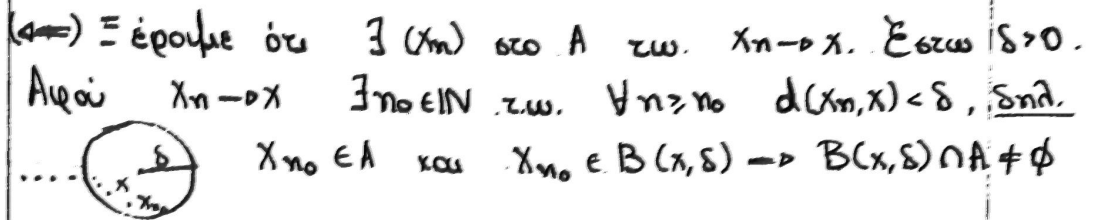 (⇐) Ξέρουμε ότι ∃ (xn) στο A τ.ω. xn → x. Έστω δ>0.
Αφού xn → x ∃n₀∈ℕ τ.ω. ∀n≥n₀ d(xn,x)<δ, δηλ.
.... δ x xn₀ xn₀ ∈ A και xn₀ ∈ B(x,δ) → B(x,δ)∩A ≠ ∅